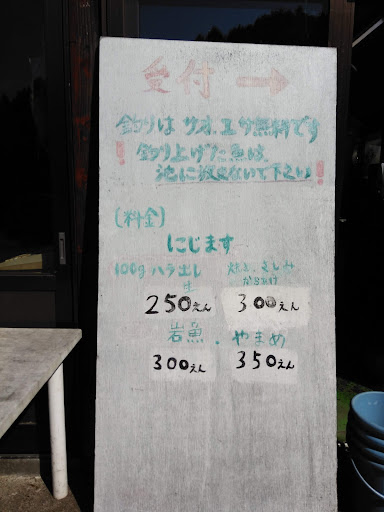 受付 →
釣りは サオ、エサ無料です
! 釣り上げた魚は、
池に返さないで下さい!
(料金)
にじます
100g ハラ出し 焼き、さしみ
生 から揚げ
250えん 300えん
岩魚 ・ やまめ
300えん 350えん